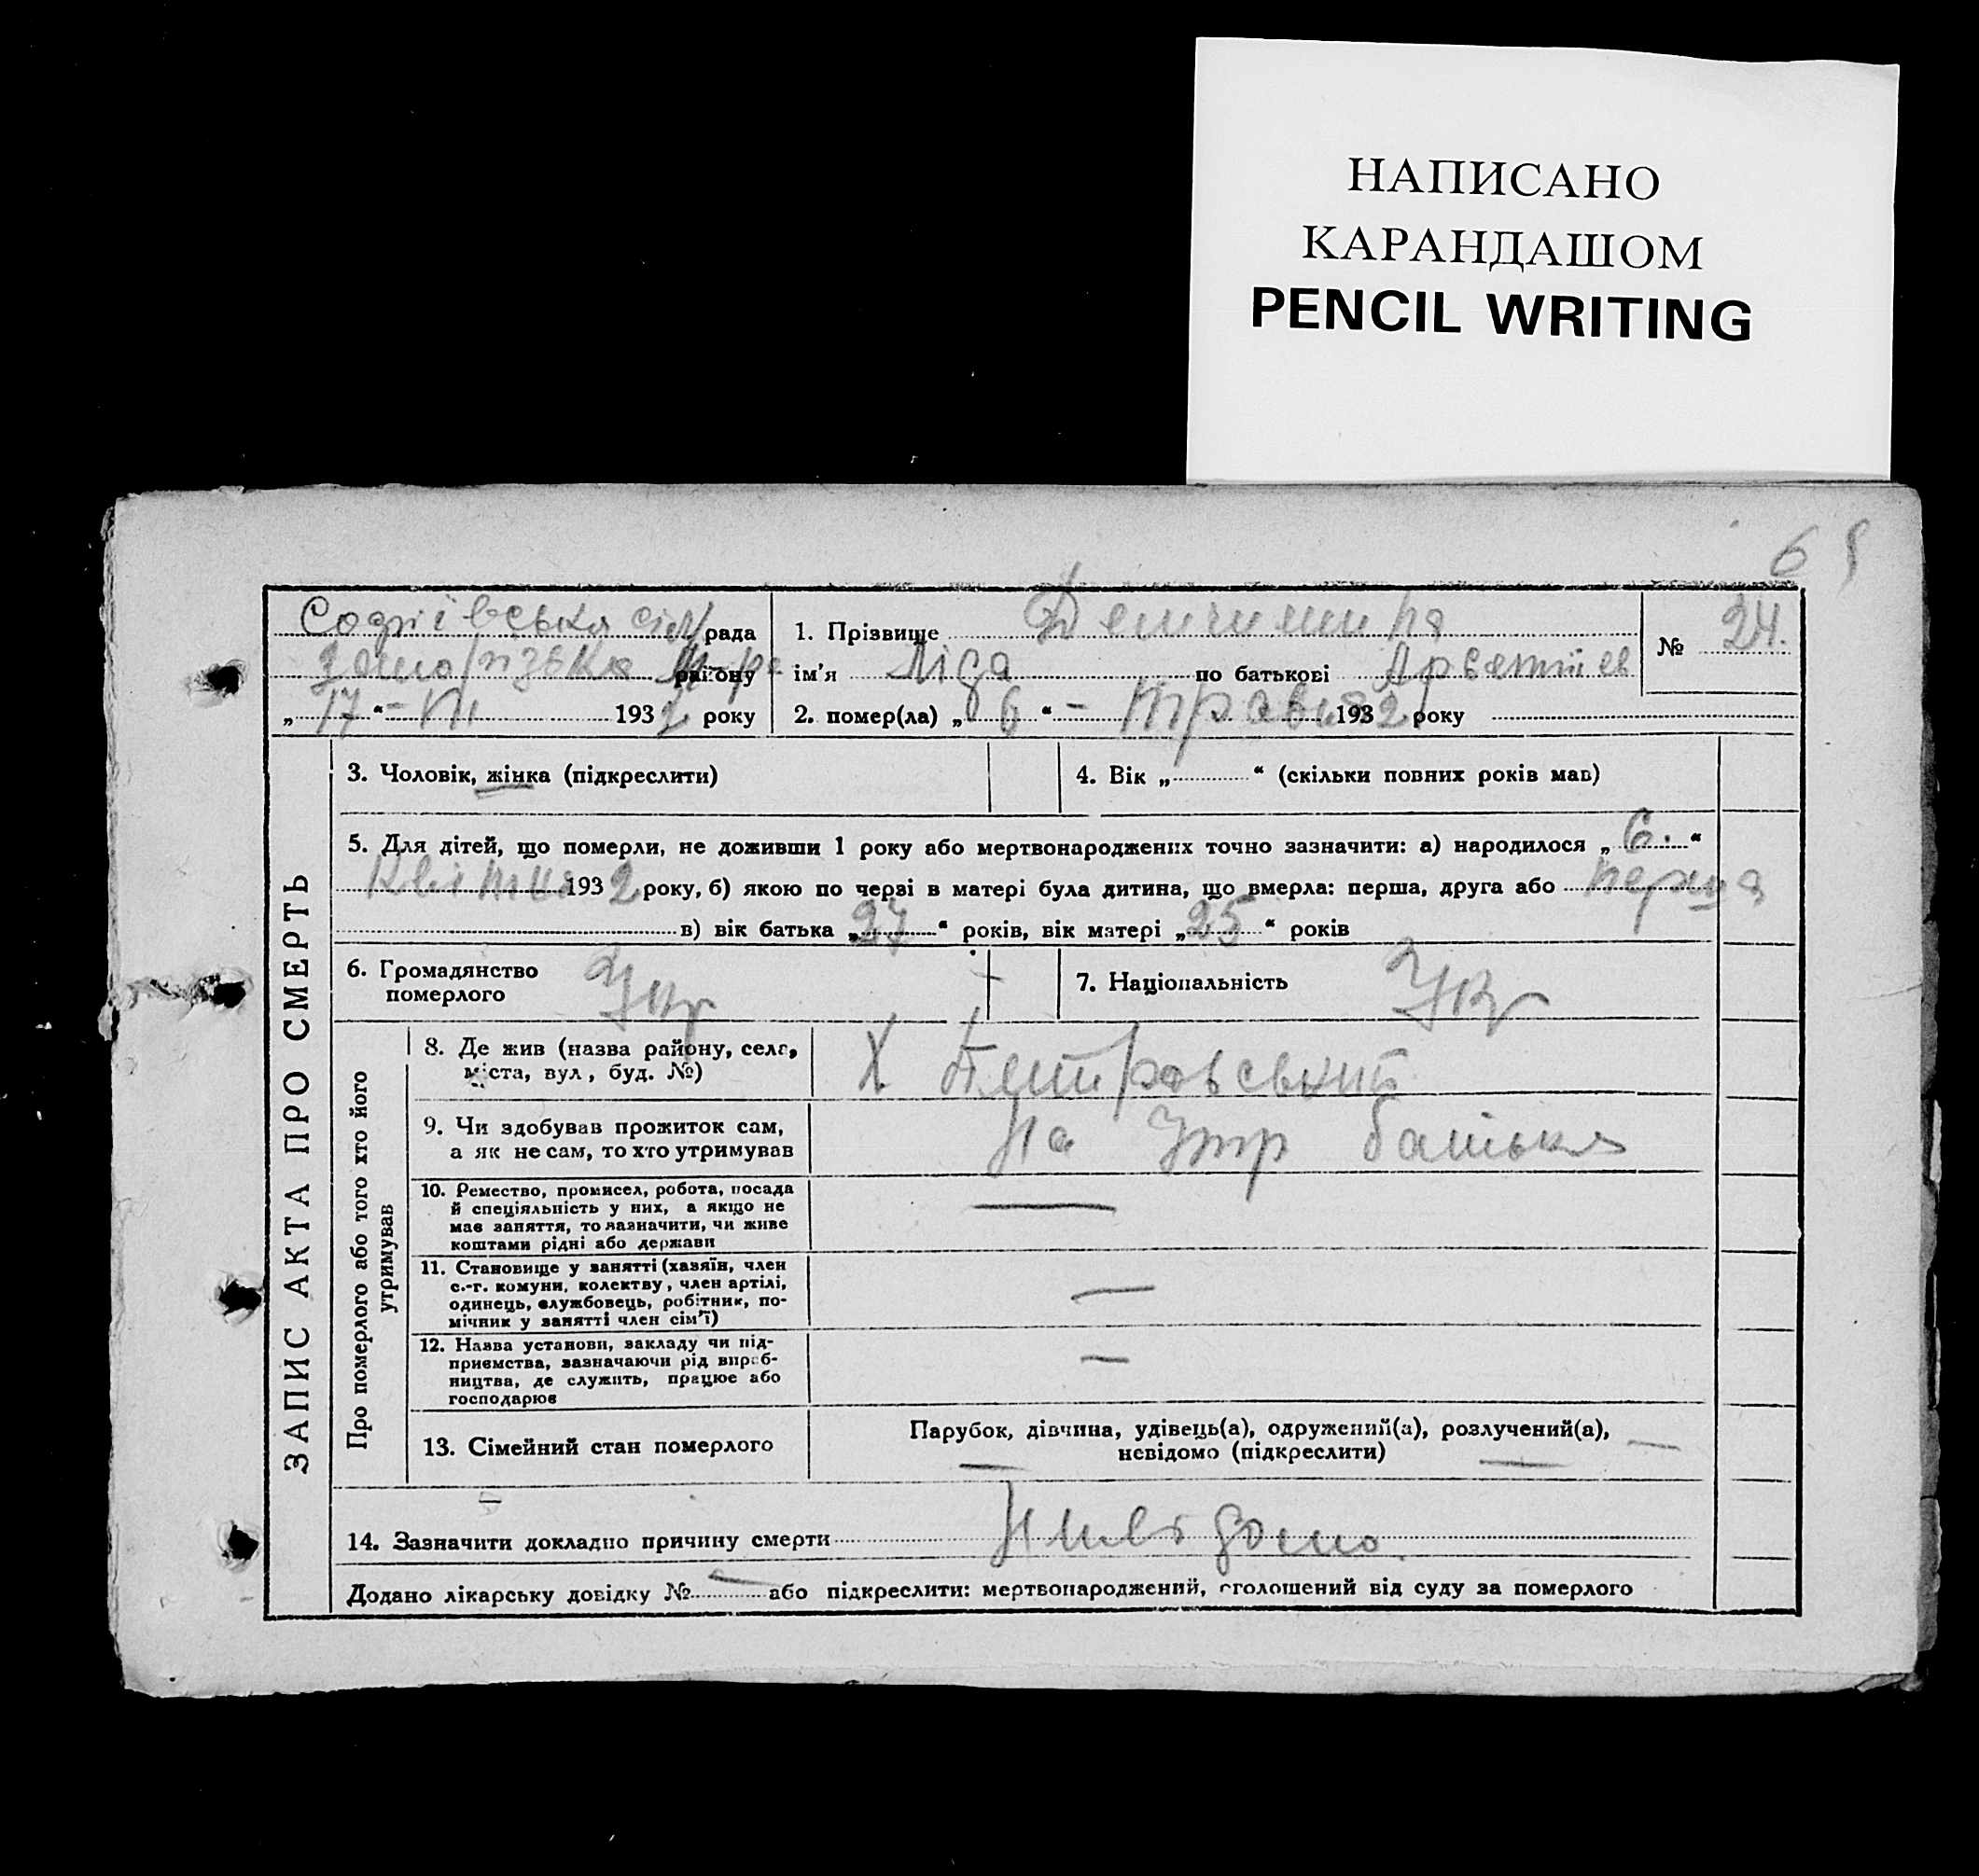 НАПИСАНО
КАРАНДАШОМ
PENCIL WRITING
6
Софіївська сіл рада
района
„ 17 “ - VII 1932 року
1. Прізвище
ім'я Ліда по батькові
№ 24.
2. помер(ла) „ 6 “ - травня 1932 року
ЗАПИС АКТА ПРО СМЕРТЬ
3. Чоловік, жінка (підкреслити)
4. Вік „ “ (скільки повних років мав)
5. Для дітей, що померли, не доживши 1 року або мертвонароджених точно зазначити: а) народилося „ 6. “
квітня 1932 року, б) якою по черві в матері була дитина, що вмерла: перша, друга або перша
в) вік батька „ 27 “ років, вік матері „ 25 “ років
6. Громадянство Укр
померлого
7. Національність Укр
Про померлого або того хто його
утримував
8. Де жив (назва району, села,
міста, вул, буд. №)
Х Петровський
9. Чи здобував прожиток сам,
а як не сам, то хто утримував
На утр батька
10. Ремество, промисел, робота, посада
й спеціяльність у них, а якщо не
має заняття, то зазначити, чи живе
коштами рідні або держави
—
11. Становище у занятті (хазяїн, член
с.-г. комуни, колектву, член артілі,
одинець, службовець, робітник, по-
мічник у занятті член сім'ї)
—
12. Назва установи, закладу чи під-
приємства, зазначаючи рід вироб-
ництва, де служить, працює або
господарює
—
13. Сімейний стан померлого
Парубок, дівчина, удівець(а), одружений(а), розлучений(а),
невідомо (підкреслити)
14. Зазначити докладно причину смерти Нивідомо.
Додано лікарську довідку № — або підкреслити: мертвонароджений, оголошений від суду за померлого